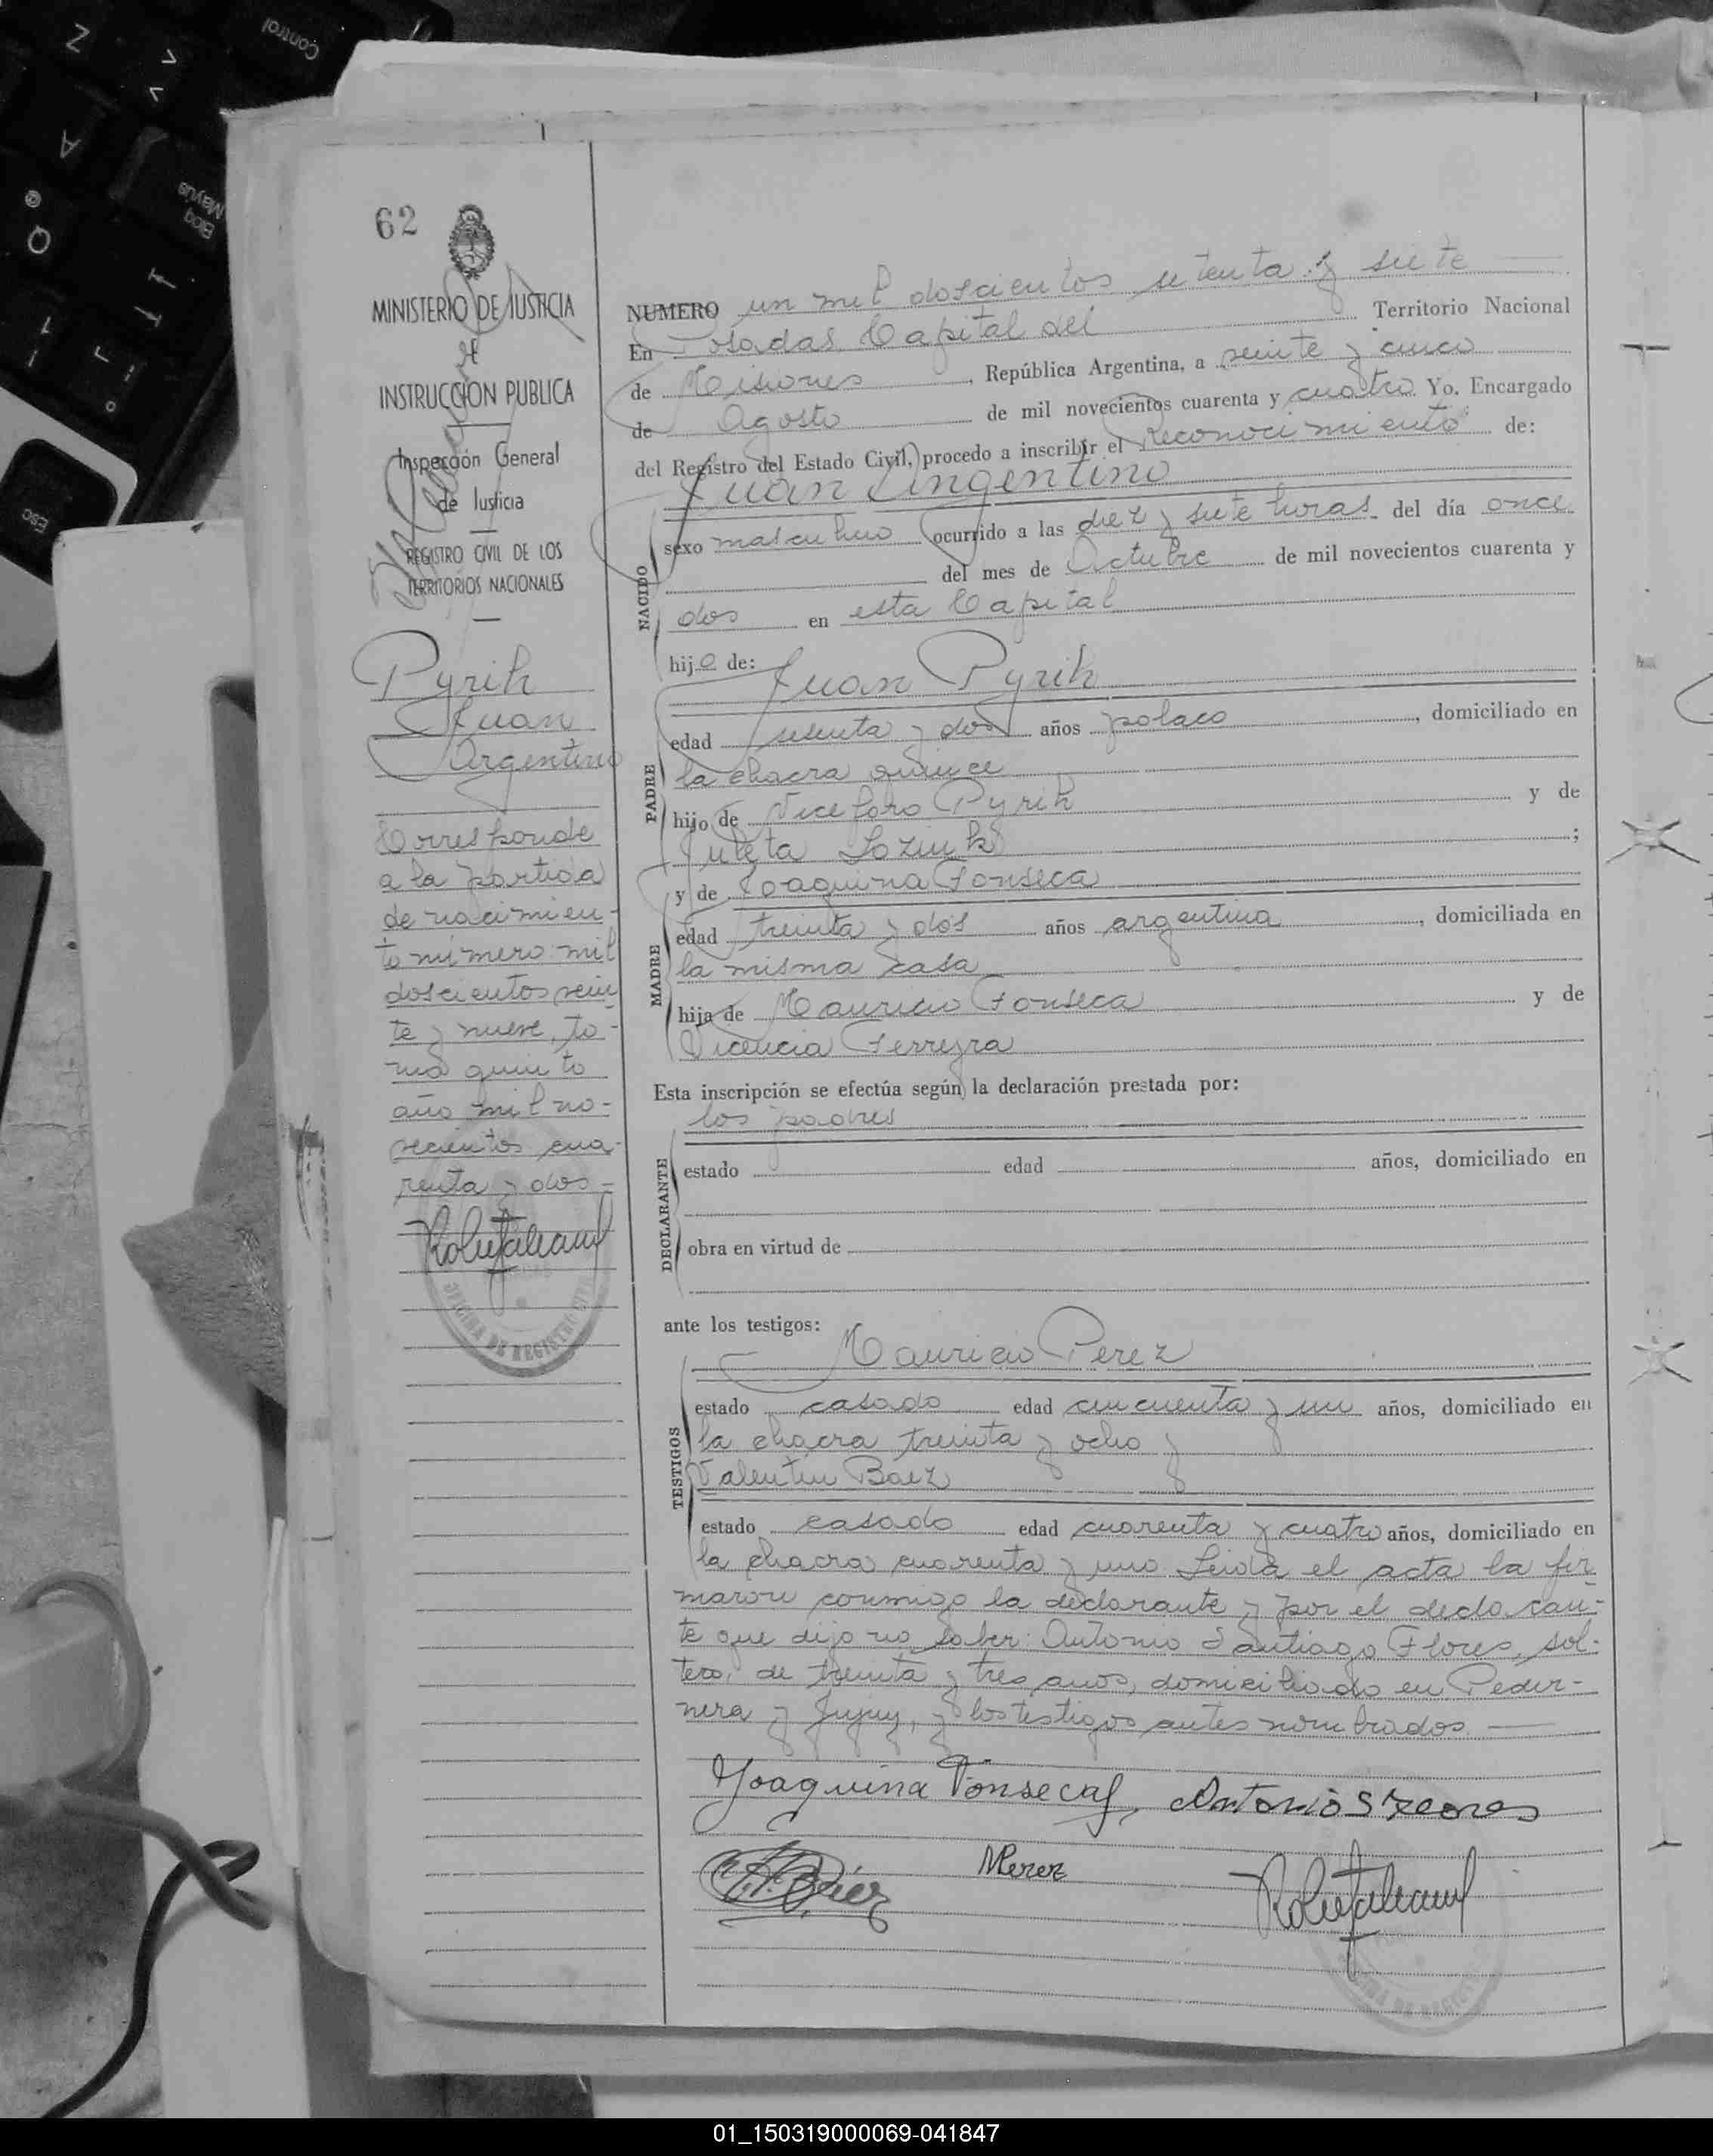 62
MINISTERIO DE JUSTICIA
E
INSTRUCCION PUBLICA
Inspección General
de Justicia
REGISTRO CIVIL DE LOS
TERRITORIOS NACIONALES
Pyrih
Juan
Argentino
Corresponde
a la partida
de nacimien-
to número mil
doscientos vein
te y nueve, to-
mo quinto
año mil no-
vecientos cua-
renta y dos-
NUMERO un mil doscientos setenta y siete
En Posadas Capital del Territorio Nacional
de Misiones, República Argentina, a veinte y cinco
de Agosto de mil novecientos cuarenta y cuatro Yo. Encargado
del Registro del Estado Civil, procedo a inscribir el Reconocimiento de:
Juan Argentino
NACIDO
sexo masculino ocurrido a las diez y siete horas del día once
del mes de Octubre de mil novecientos cuarenta y
dos en esta Capital
hijo de: Juan Pyrih
PADRE
edad sesenta y dos años polaco, domiciliado en
la chacra quince
hijo de Niceforo Pyrih y de
Juleta ;
y de Joaquina Fonseca
MADRE
edad treinta y dos años argentina, domiciliada en
la misma casa
hija de Mauricio Fonseca y de
Vicencia Ferreyra
Esta inscripción se efectúa según la declaración prestada por:
los padres
DECLARANTE
estado edad años, domiciliado en
obra en virtud de
ante los testigos:
Mauricio Perez
TESTIGOS
estado casado edad cincuenta y un años, domiciliado en
la chacra treinta y ocho y
Valentin Baez
estado casado edad cuarenta y cuatro años, domiciliado en
la chacra cuarenta y uno. Leida el acta la fir
maron conmigo la declarante y por el declaran-
te que dijo no saber Antonio Santiago Flores, sol-
tero, de treinta y tres anos, domiciliado en Peder-
nera y Jujuy, y los testigos antes nombrados.
Joaquina Fonseca, Antonio S Flores
Báez MPerez
01_150319000069-041847